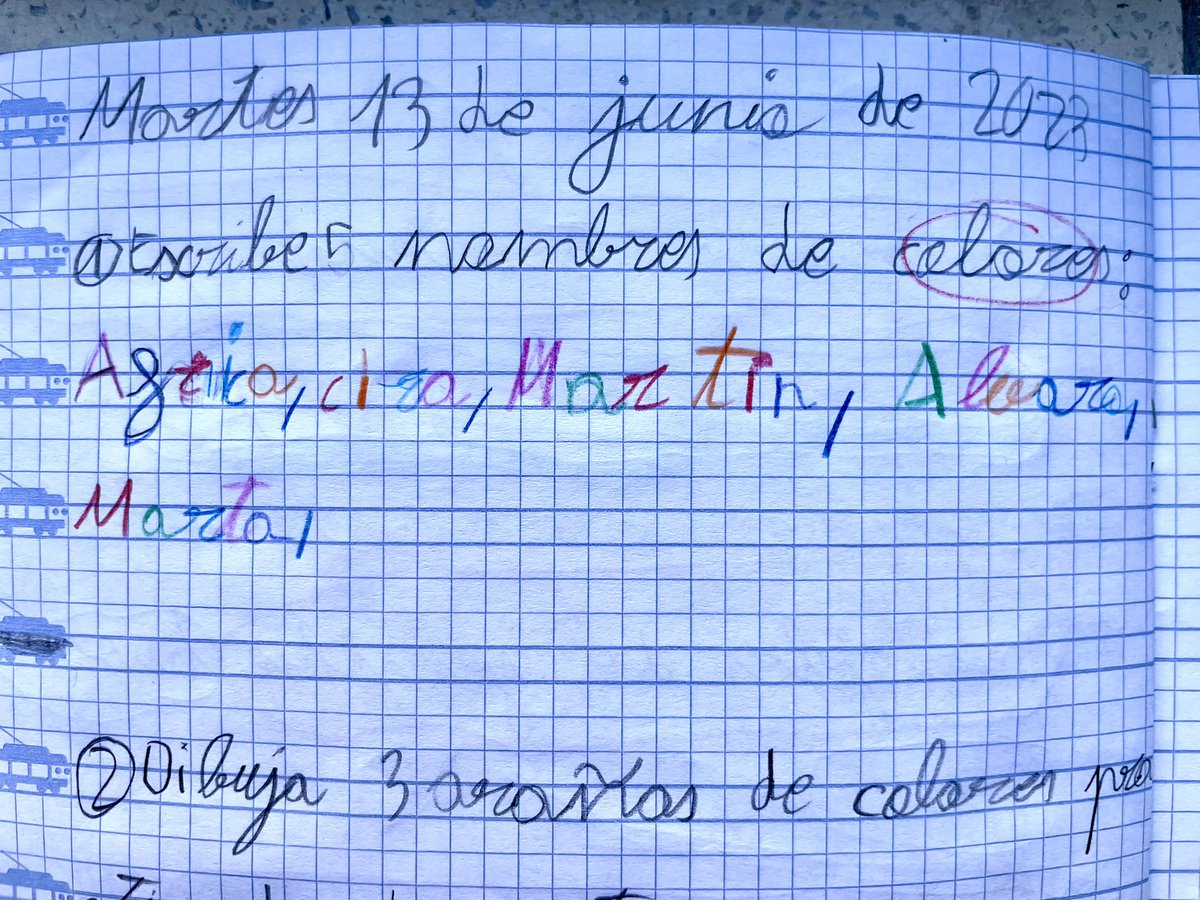 Martes 13 de junio de 2023
① Escribe 5 nombres de colores:
Afrika, cira, Martin, Alvaro,
Marta,
② Dibuja 3 arañas de colores